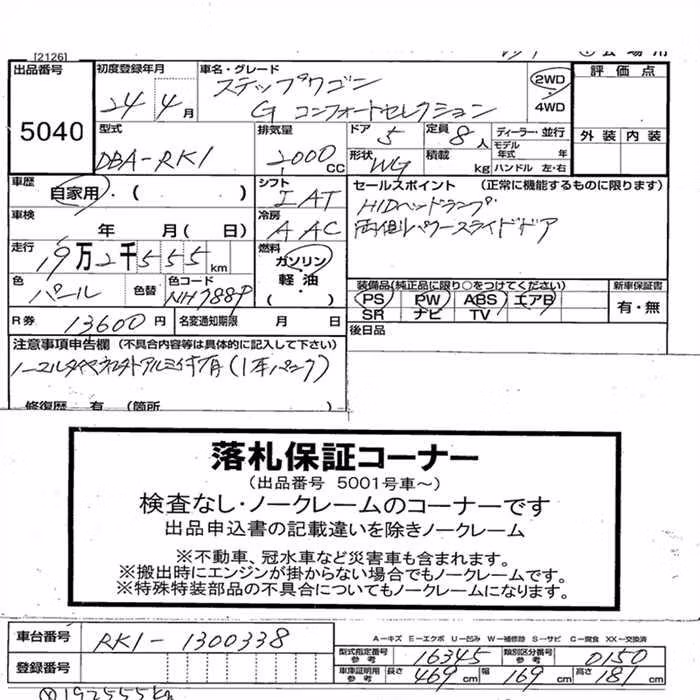 [2126]
出品番号 5040
初度登録年月 24年4月
車名・グレード ステップワゴン
G コンフォートセレクション
2WD
4WD
評価点
外装 内装
型式 DBA-RK1
排気量 2000CC
ドア 5 定員 8人
形状 WG 積載 kg
ディーラー・並行
モデル年式 年
ハンドル 左・右
車歴 自家用・( )
シフト IAT
車検 年 月(日)
冷房 AAC
走行 19万2千555km
燃料 ガソリン
軽油・( )
色 パール 色替 色コード NH788P
R券 13600円 名変通知期限 月 日
セールスポイント (正常に機能するものに限ります)
HIDヘッドランプ
両側パワースライドドア
装備品(純正品に限り○をつけてください) 新車保証書
PS PW ABS エアB 有・無
SR ナビ TV
後日品
注意事項申告欄(不具合内容等は具体的に記入して下さい)
(1本パンク)
修復歴 有 (箇所 )
落札保証コーナー
(出品番号 5001号車~)
検査なし・ノークレームのコーナーです
出品申込書の記載違いを除きノークレーム
※不動車、冠水車など災害車も含まれます。
※搬出時にエンジンが掛からない場合でもノークレームです。
※特殊特装部品の不具合についてもノークレームになります。
車台番号 RK1-1300338
A-キズ E-エクボ U-凹み W-補修跡 S-サビ C-腐食 XX-交換済
型式指定番号 参考 16345 類別区分番号 参考 0150
登録番号
車庫証明用 参考 長さ 469cm 幅 169cm 高さ 181cm
192555km